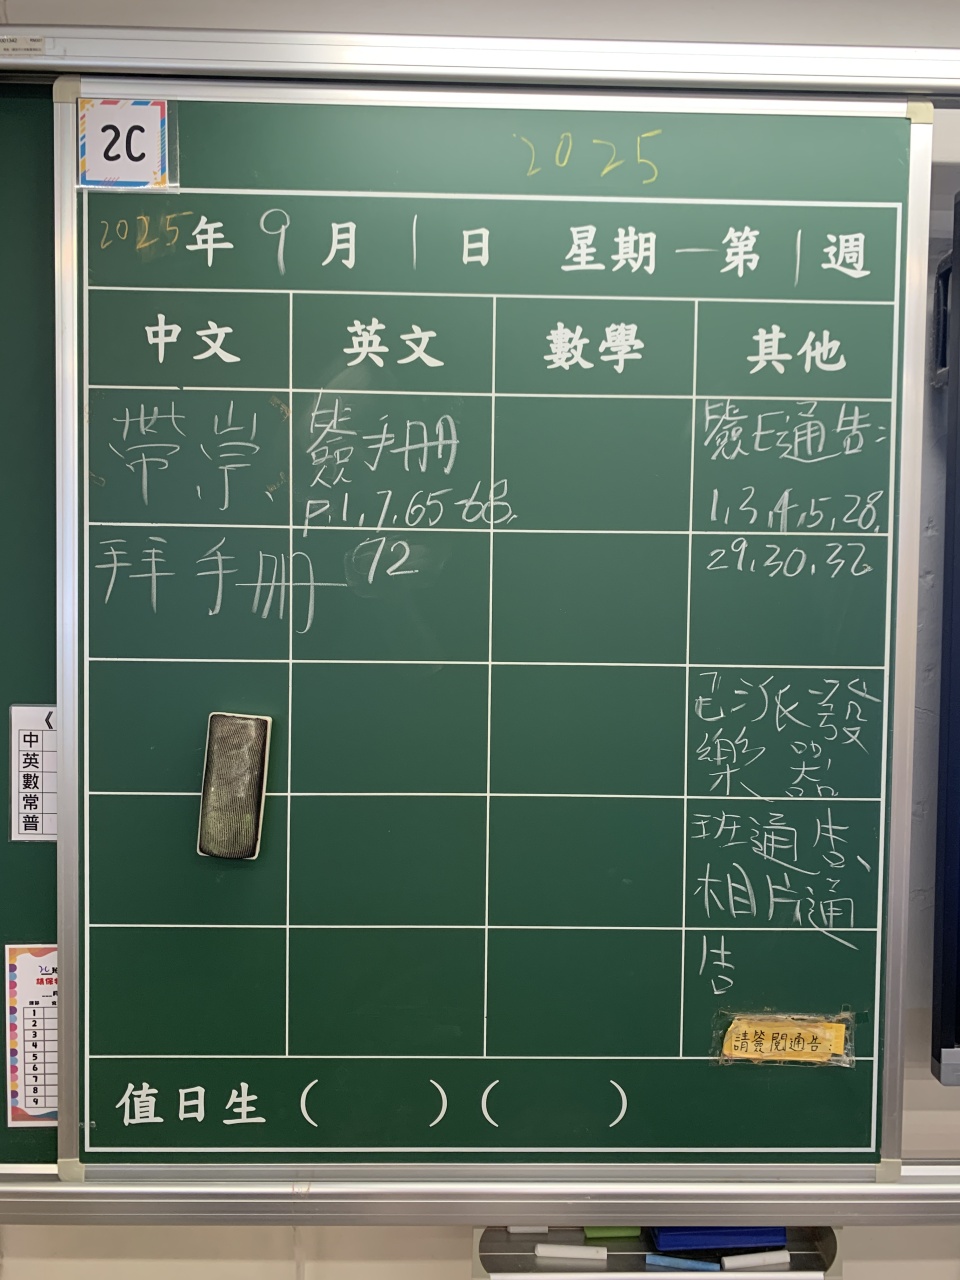 2C
2025
2025年9月1日 星期一第1週
中文 英文 數學 其他
簽手册
p.1,7,65-68,
72
手册
簽E通告:
1,3,4,5,28,
29,30,32
派發
樂器
班通告、
相片通
告
請簽閱通告:
值日生( )( )
《
中
英
數
常
普
1
2
3
4
5
6
7
8
9